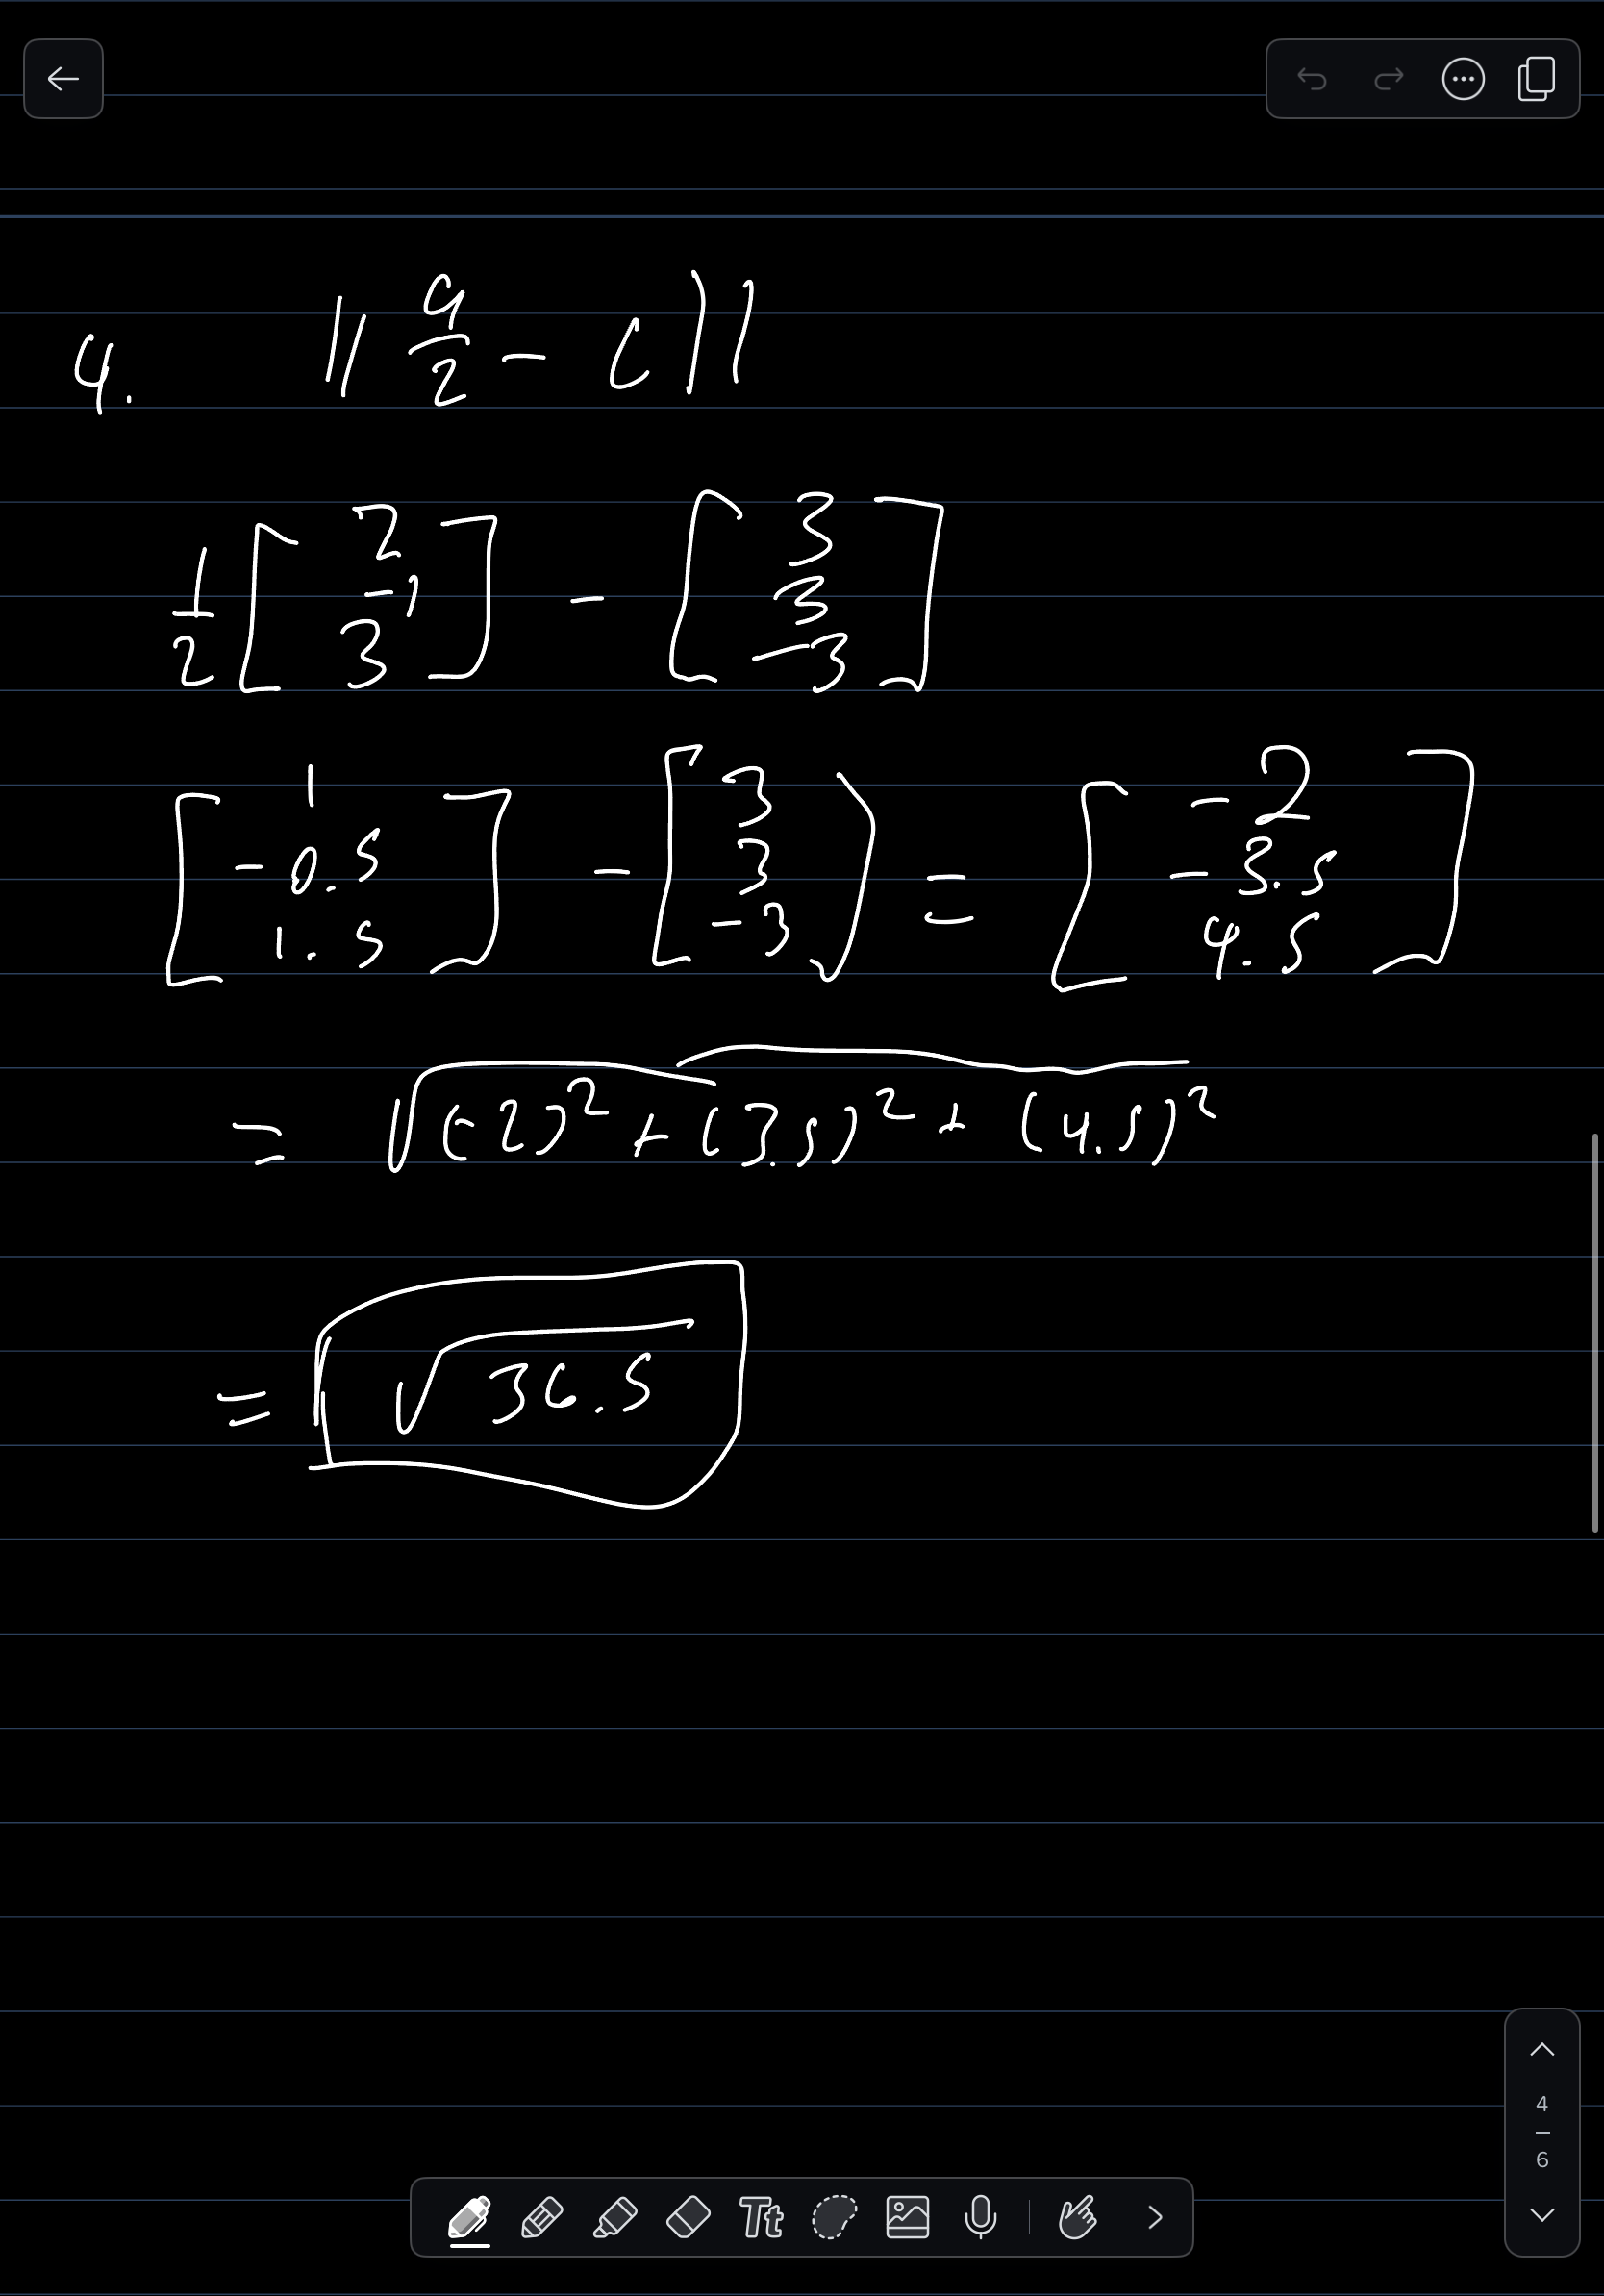 4. || a/2 - c ||
1/2 [ 2 -1 3 ] - [ 3 3 -3 ]
[ 1 -0.5 1.5 ] - [ 3 3 -3 ] = [ -2 -3.5 4.5 ]
= √((-2)² + (3.5)² + (4.5)²)
= √36.5
4
6
Tt